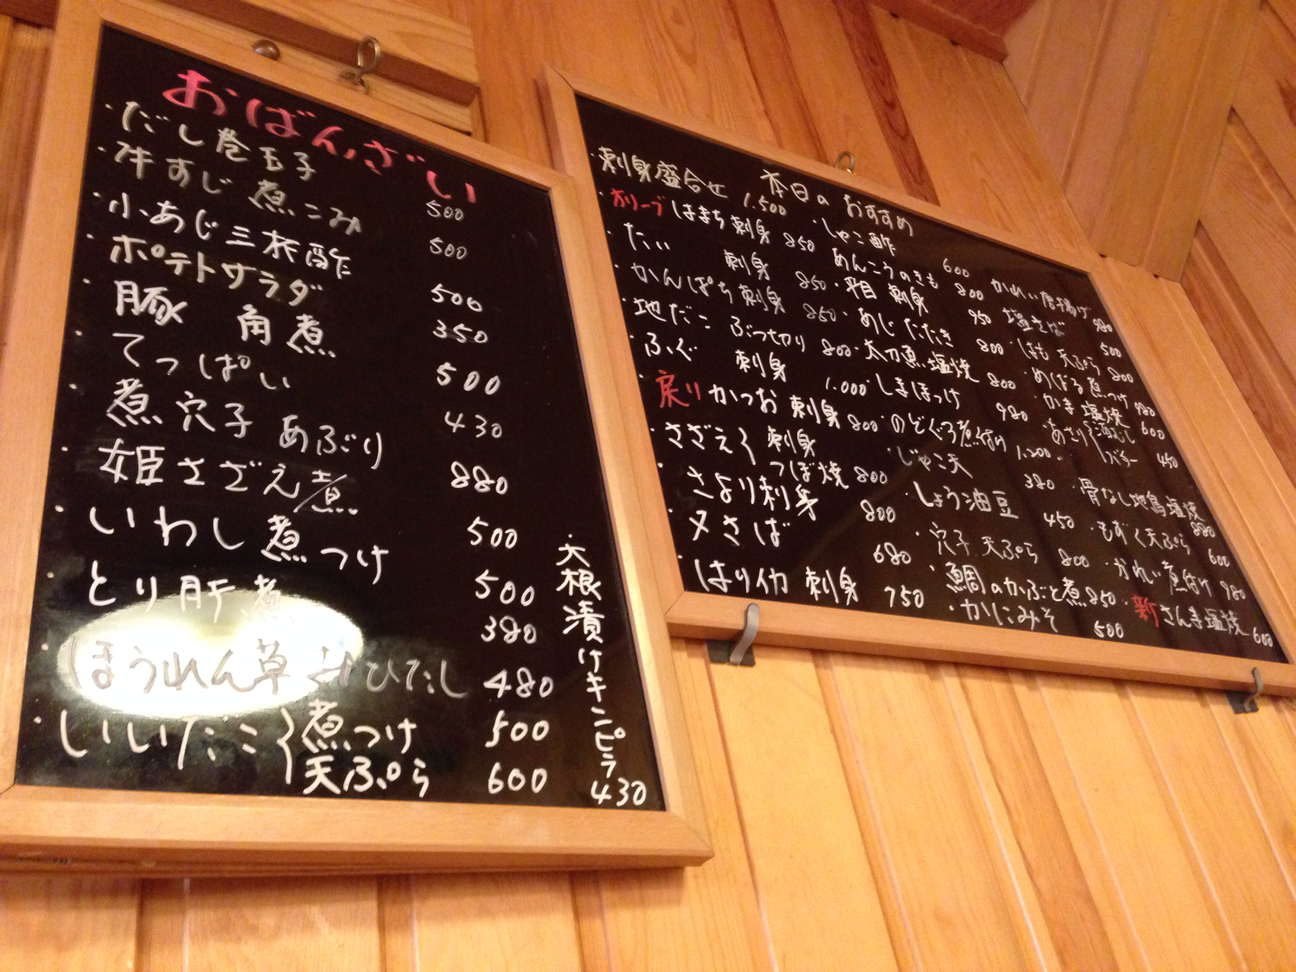 おばんざい
・だし巻玉子 500
・牛すじ煮こみ 500
・小あじ三杯酢 500
・ポテトサラダ 350
・豚 角煮 500
・てっぱい 430
・煮穴子 あぶり 880
・姫さざえ煮 500
・いわし煮つけ 500
・とり肝煮 380
・ほうれん草おひたし 480
・いいだこ 煮つけ 500
天ぷら 600
・大根漬けキンピラ 430
本日のおすすめ
・刺身盛合せ 1.500
・オリーブはまち刺身 850
・たい 刺身 850
・かんぱち刺身 850
・地だこ ぶつ切り 800
・ふぐ 刺身 1.000
・戻りかつお刺身 800
・さざえ 刺身
つぼ焼 800
・さより刺身 800
・〆さば 680
・はりイカ 刺身 750
・しゃこ酢 600
・あんこうのきも 800
・平目 刺身 950
・あじ たたき 800
・太刀魚塩焼 800
・しまほっけ 980
・のどぐろ煮付け 1.200
・じゃこ天 380
・しょうゆ豆 450
・穴子 天ぷら 800
・鯛のかぶと煮 850
・かにみそ 500
・かれい唐揚げ 980
・塩そば 500
・はも 天ぷら 800
・めばる煮つけ 980
・かま 塩焼 600
・あさり 酒むし
バター 450
・骨なし地鳥塩焼 880
・もずく天ぷら 600
・かれい煮付け 980
・新さんま塩焼 600